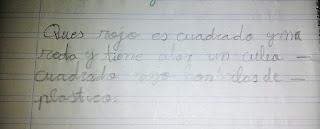 Ques rojo es cuadrado y ma
reda y tiene alas un culia –
cuadrado rojo con alas de –
plastico.